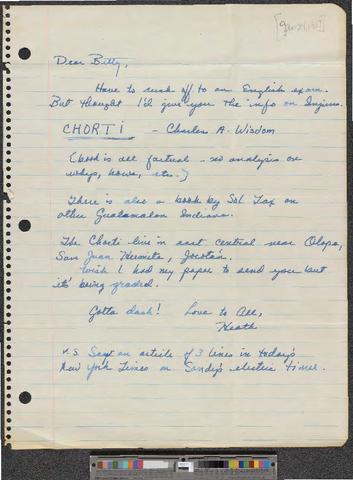 Dear Betty,
Have to rush off to an English exam.
But thought I'd give you the info on Injuns.
CHORTI - Charles A. Wisdom
(book is all factual - no analysis on
whys, hows, etc.)
There is also a book by Sol Tax on
other Guatamalan Indians.
The Chorti live in east central near Olopa,
San Juan Hermita, Jocotán.
Wish I had my paper to send you but
it's being graded.
Gotta dash! Love to All,
Heath
P.S. Sent an article of 3 lines in today's
New York Times on Sandy's electric timer.